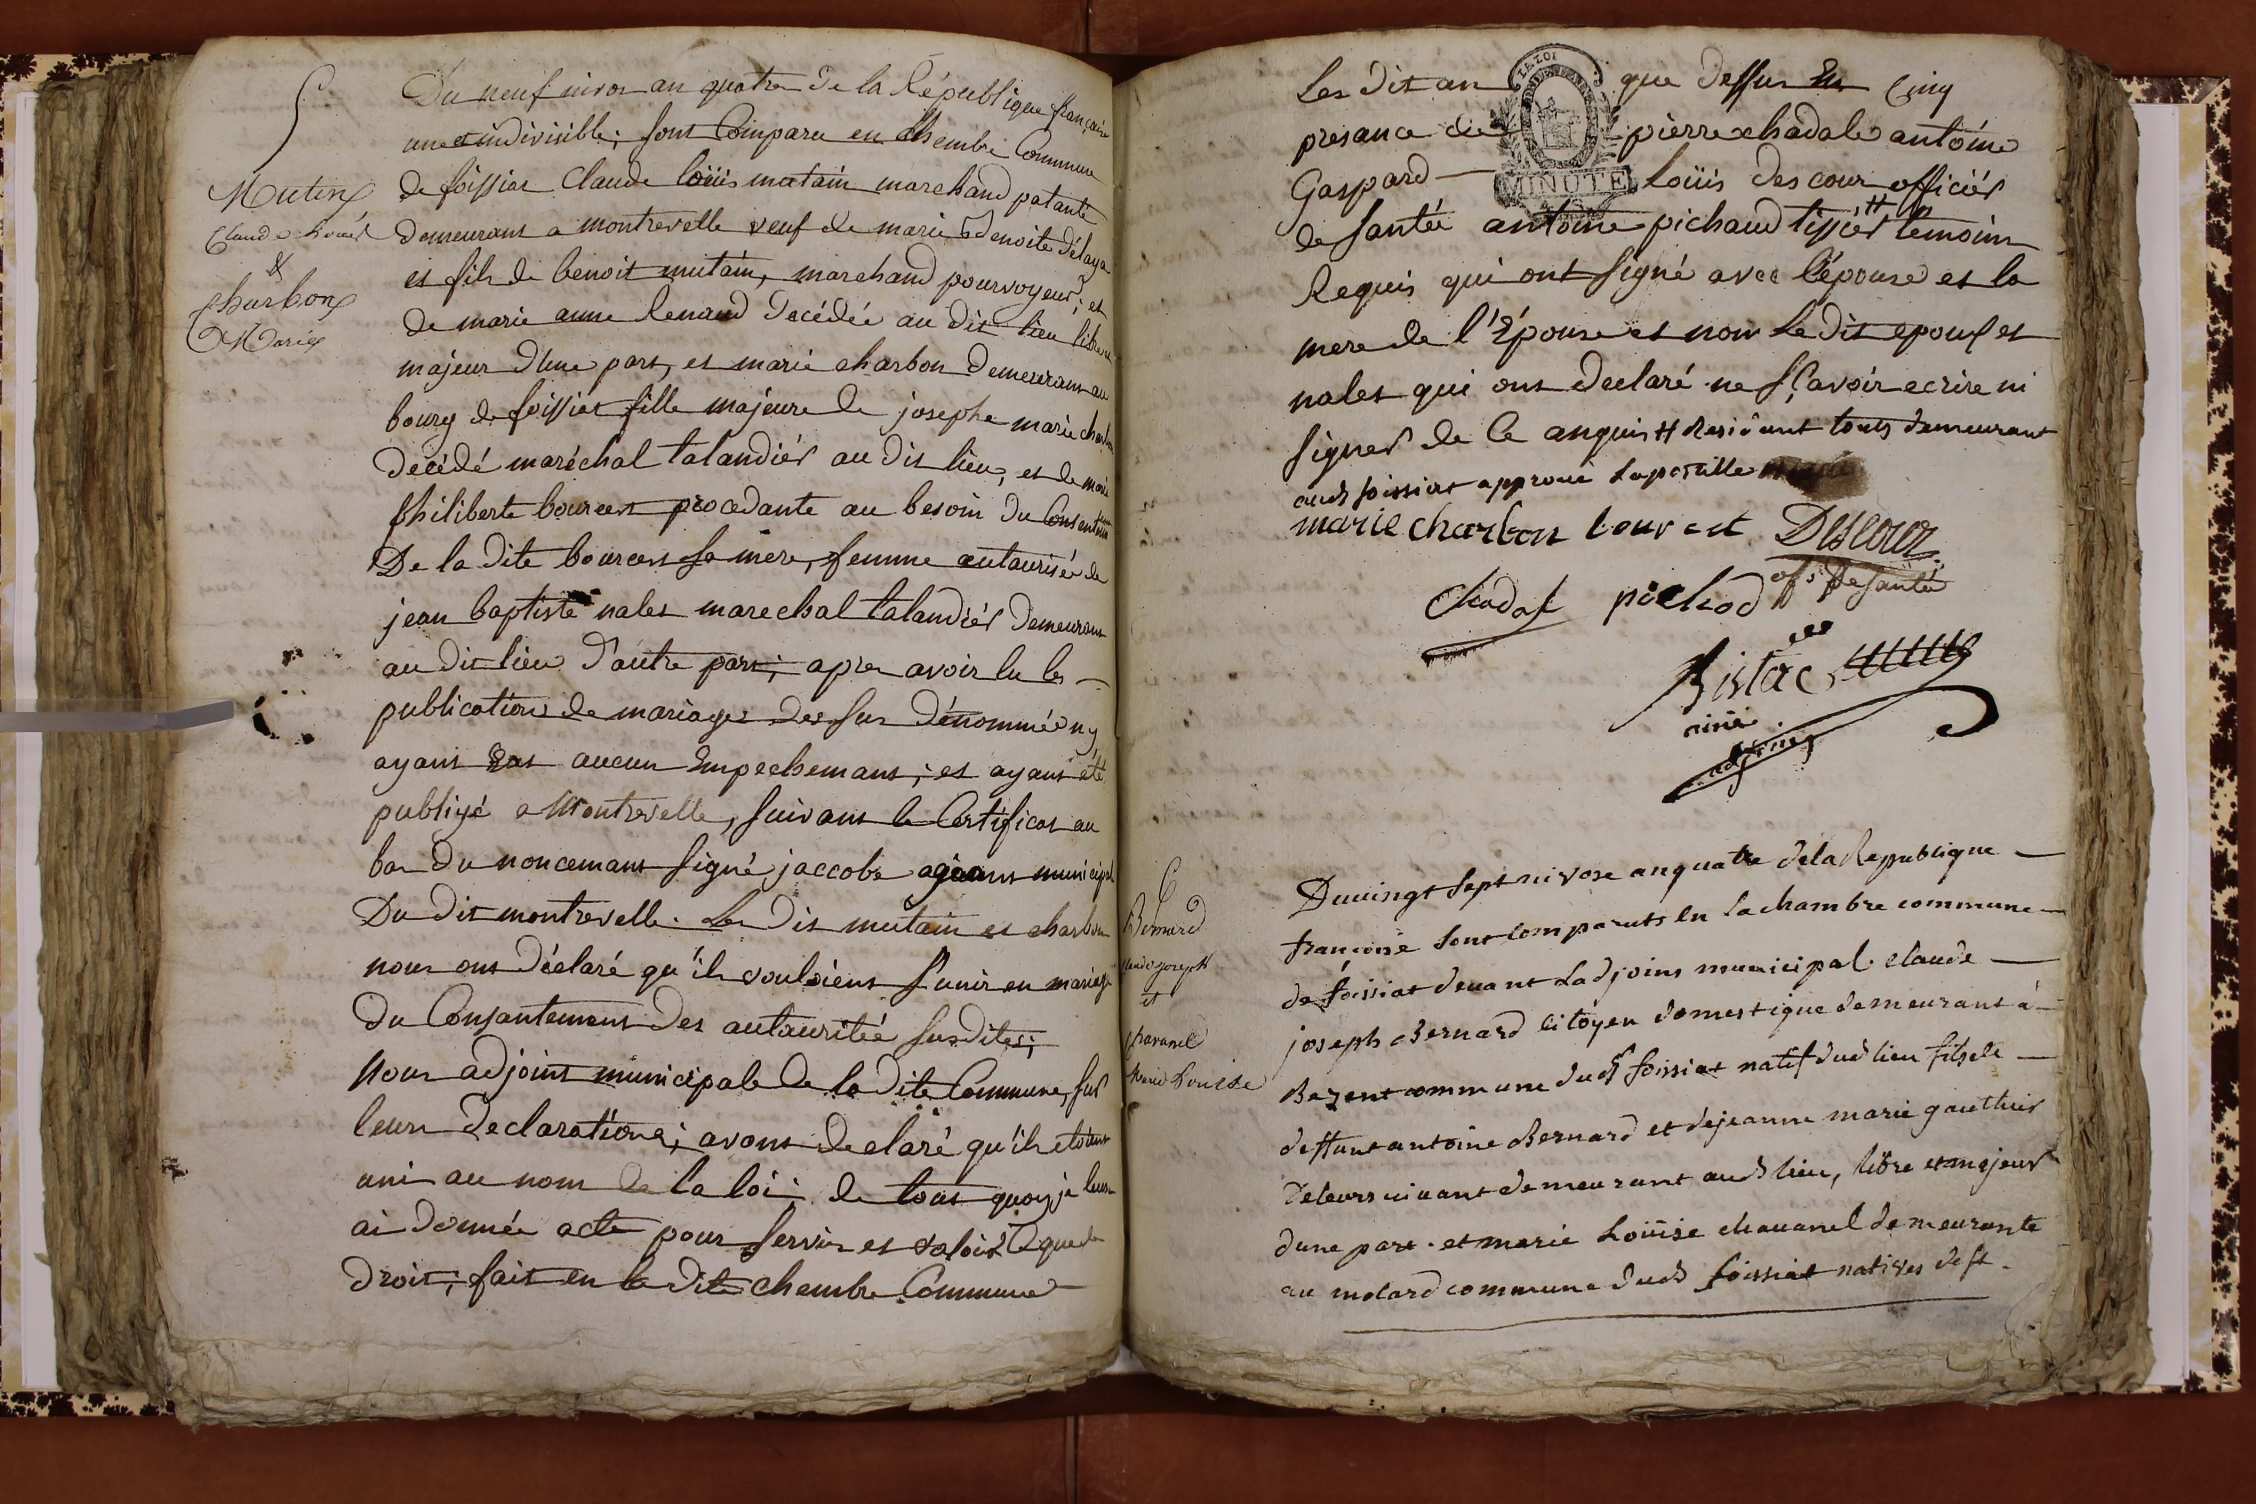 5
Mutin
Claude Louis
&
Charbon
Marie
Du neuf nivos an quatre de la République françaice
une et indivisible; sont Comparu en Chembre Commune
de foissiat Claude loüis mutain marchand patanté
demeurant a montrevelle veuf de marie Benoite Délaya
et fils de benoit mutain, marchand pourvoyeur; et
de marie anne Renaud Décédée au dit lieu libre et
majeur d'une part, et marie charbon Demeurant au
bourg de foissiat fille majeure de josephe marie charbon
Decédé maréchal talandiér au dit lieu, et de marie
philiberte bourcet procedante au besoin du Consentement
De la dite bourcet sa mere, femme autaurisée de
jean baptiste nalet marechal talandiér Demeurant
au dit lieu d'autre part; apres avoir lu les
publications de mariages des sus dénommée ny
ayant Eat aucun Empechemans; et ayant été
publiyé a Montrevelle, suivant le Certificat au
bas du noncemant signé jaccobe ageant municipal
Du dit montrevelle. Les dit mutain et charbon
nous ont déclaré qu'ils vouloient s'unir en mariage
du Consantement des autaurités susdites;
Nous adjoint municipale de la dite Commune, sur
leurs declarations; avons declaré qu'ils etoient
uni au nom de la loi: de tout quoy je leurs
ai donnée acte pour servir et valoir Ce que de
droit; fait en la dite chembre Commune
Les dit an que dessus En Cinq
LA LOI
presance de pierre chadale antoine
Gaspard Loüis descour officiér
MINUTE
de santée antoine pichaud tissiér # témoins
Requis qui ont signé avec l'épouse et la
mere de l'Épouse et non le dit epoux et
nalet qui ont declaré ne sçavoir ecrire ni
signer de Ce anquis # Residant touts demeurant
aud foissiat approuvé lapostille
marie charbon bourcet Descour
off. de santée
Chadal pichod
Pistac
adjoint
6
Bernard
Claude Joseph
et
Chavanel
Marie Louise
Du vingt sept nivose an quatre de la Republique
françoise sont comparuts en la chambre commune
de foissiat devant Ladjoint municipal. claude
joseph Bernard citoyen domestique demeurant á
Bezent commune dud foissiat natif dud lieu fils de
deffunt antoine Bernard et de jeanne marie gauthier
de leurs vivant demeurant aud lieu, libre et majeur
dune part. et marie Loüise chavanel demeurante
au molard commune dud foissiat natives de st.